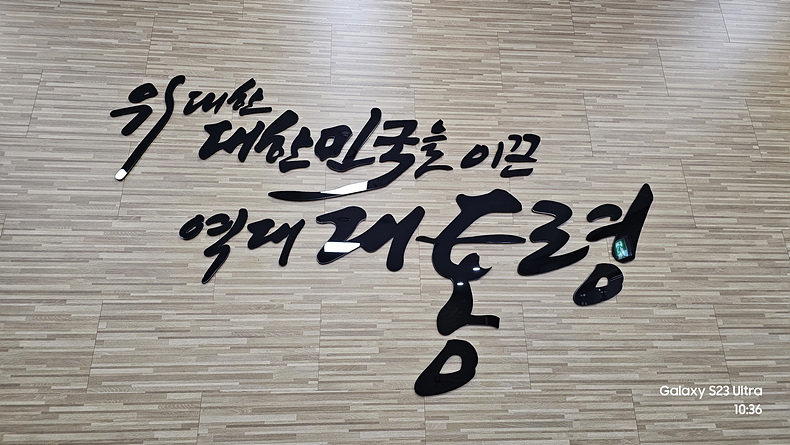 위대한
대한민국을 이끈
역대 대통령
Galaxy S23 Ultra
10:36